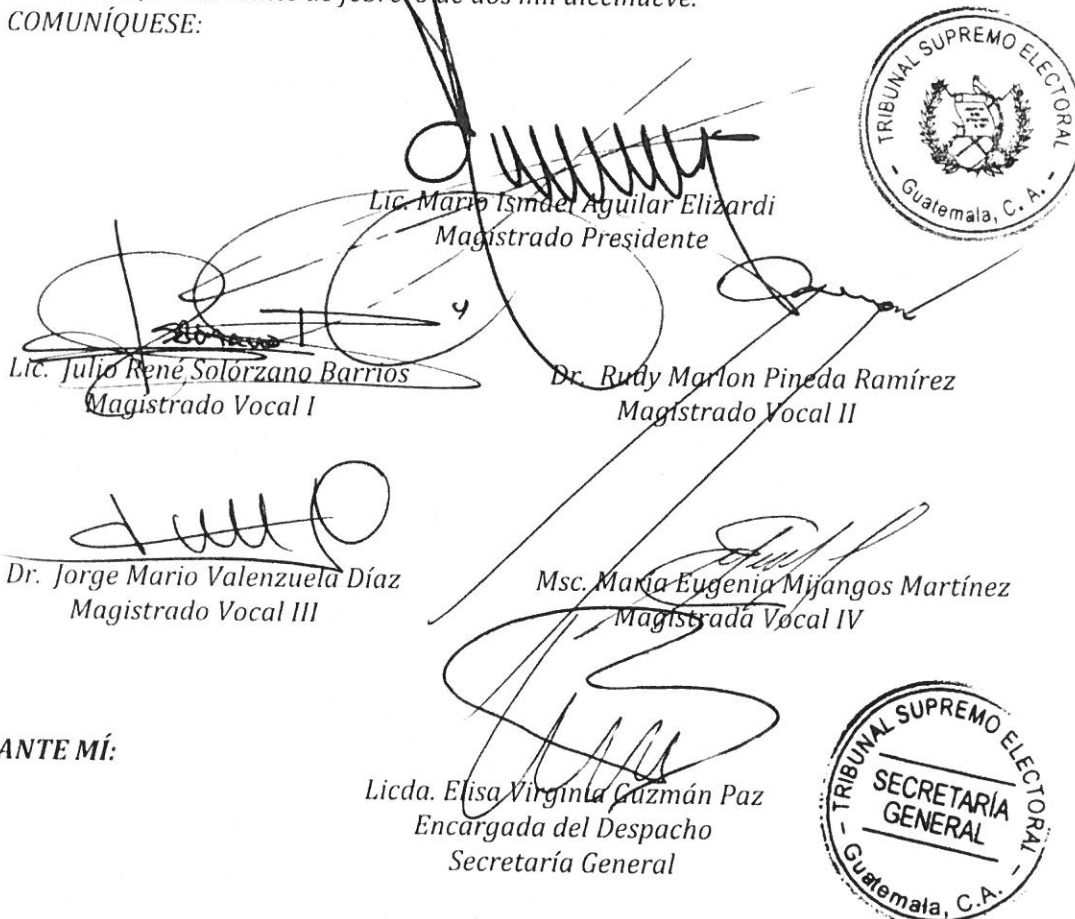 de febrero de dos mil diecinueve.
COMUNÍQUESE:
TRIBUNAL SUPREMO ELECTORAL
- Guatemala, C. A. -
Lic. Mario Ismael Aguilar Elizardi
Magistrado Presidente
Lic. Julio René Solórzano Barrios
Magistrado Vocal I
Dr. Rudy Marlon Pineda Ramírez
Magistrado Vocal II
Dr. Jorge Mario Valenzuela Díaz
Magistrado Vocal III
Msc. María Eugenia Mijangos Martínez
Magistrada Vocal IV
ANTE MÍ:
Licda. Elisa Virginia Guzmán Paz
Encargada del Despacho
Secretaría General
TRIBUNAL SUPREMO ELECTORAL
SECRETARÍA
GENERAL
- Guatemala, C.A. -